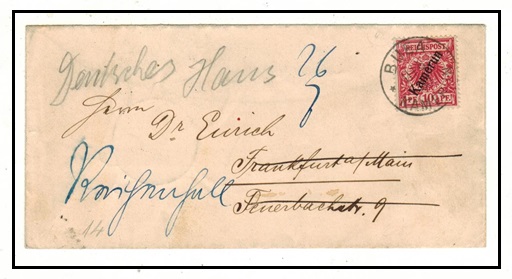 REICHSPOST
Kamerun
10
Deutsches Haus
26
Herrn
Dr Eurich
Frankfurt a/Main
Reichenhall
Feuerbachstr. 9
14